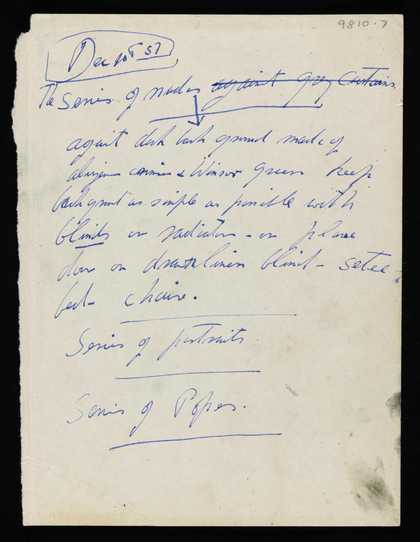 9810.7
Dec 10th 57
The Series of nudes against grey curtains
against dark back ground made of
alizarin crimson & Winsor green keep
background as simple as possible with
blinds or radiator - on
door on blind - setee -
bed - chair.
Series of portraits
Series of Popes.